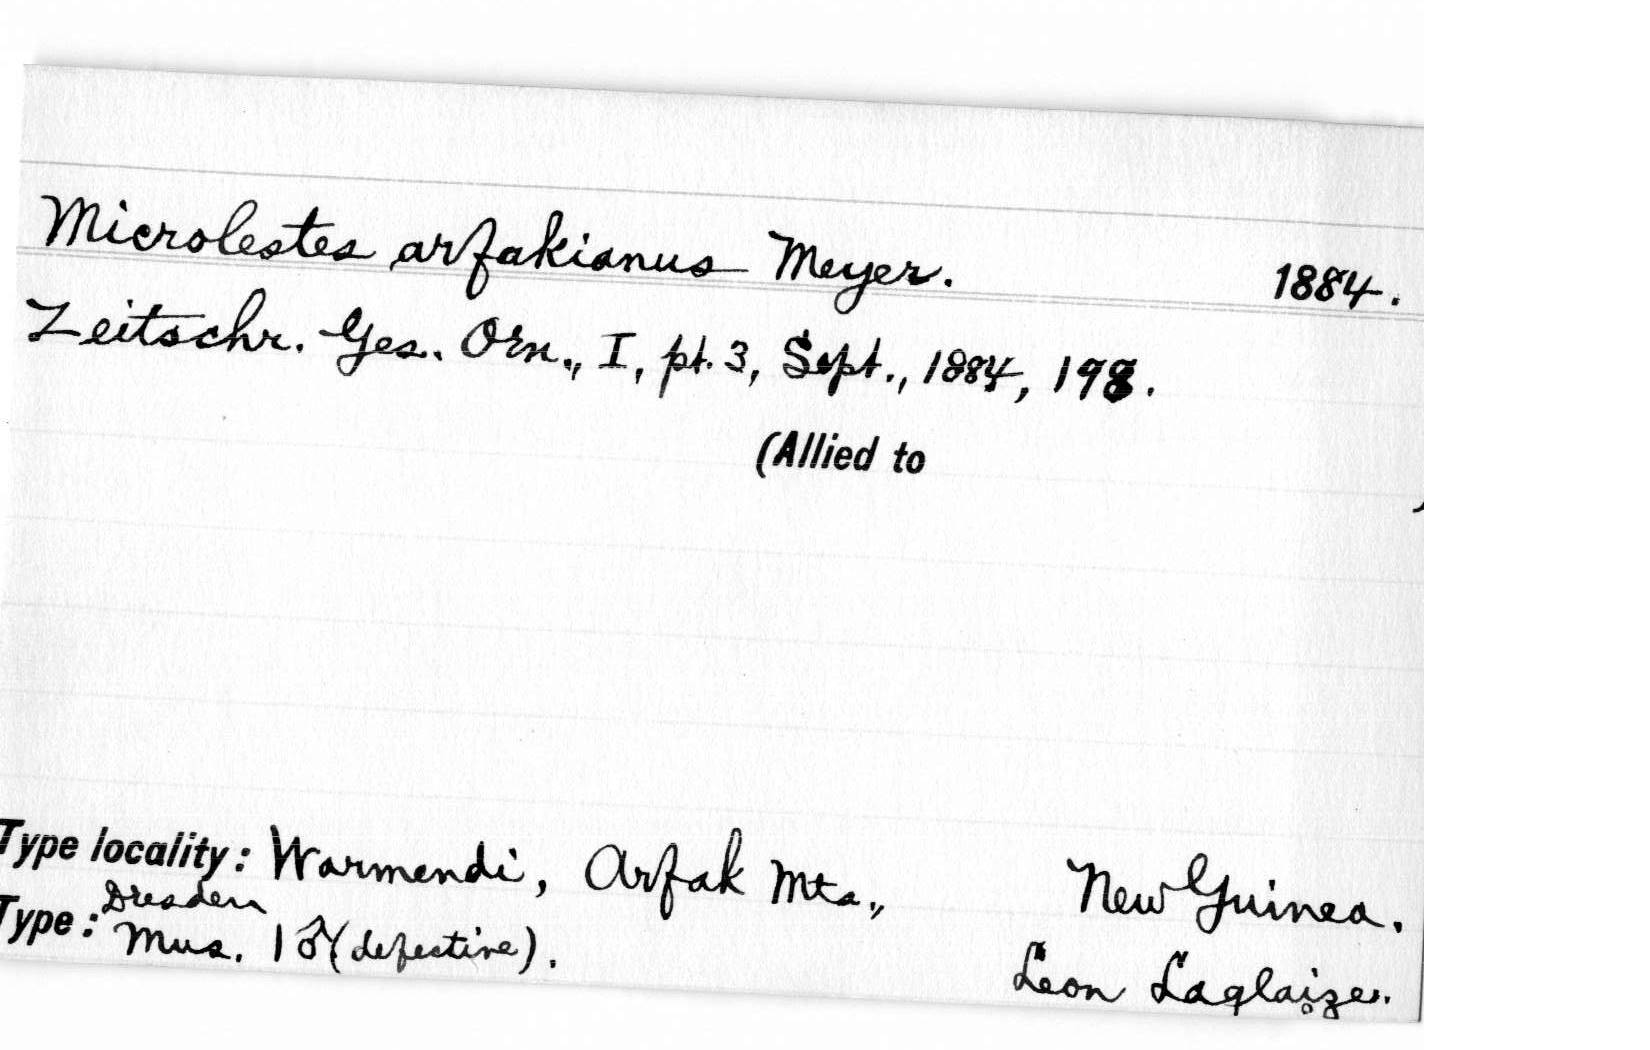 Microlestes arfakianus Meyer. 1884.
Zeitschr. Ges. Orn., I, pt. 3, Sept., 1884, 198.
(Allied to )
Type locality: Warmendi, Arfak Mts., New Guinea.
Type: Dresden Mus. 1♂(defective). Leon Laglaize.